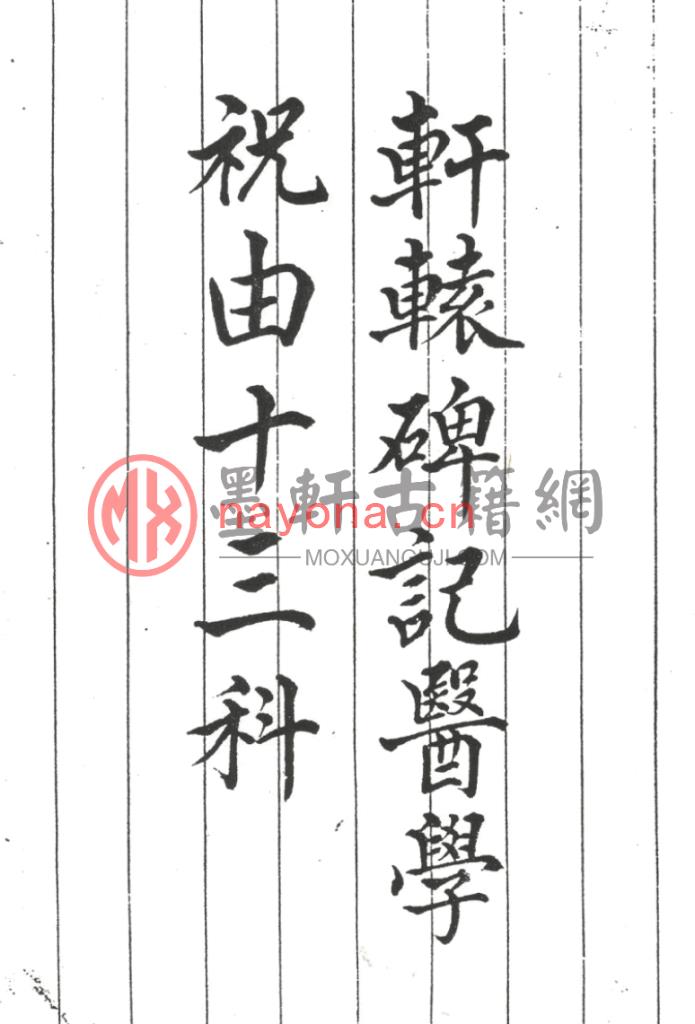 軒轅碑記醫學
祝由十三科
MX
墨軒古籍網
nayona.cn
MOXUANGUJI.COM